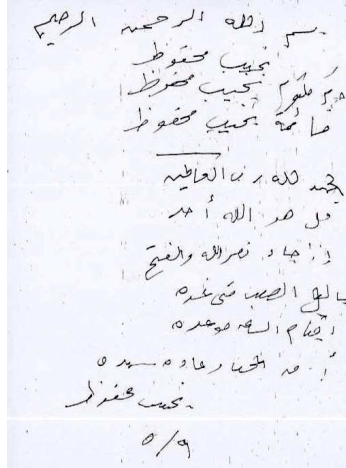 بسم الله الرحمن الرحيم
نجيب محفوظ
أم كلثوم نجيب محفوظ
فاطمة نجيب محفوظ
الحمد لله رب العالمين
قل هو الله أحد
إذا جاء نصر الله والفتح
يا ليل الصب متى غده
أقيام الساعة موعده
نجيب محفوظ
٥/٩